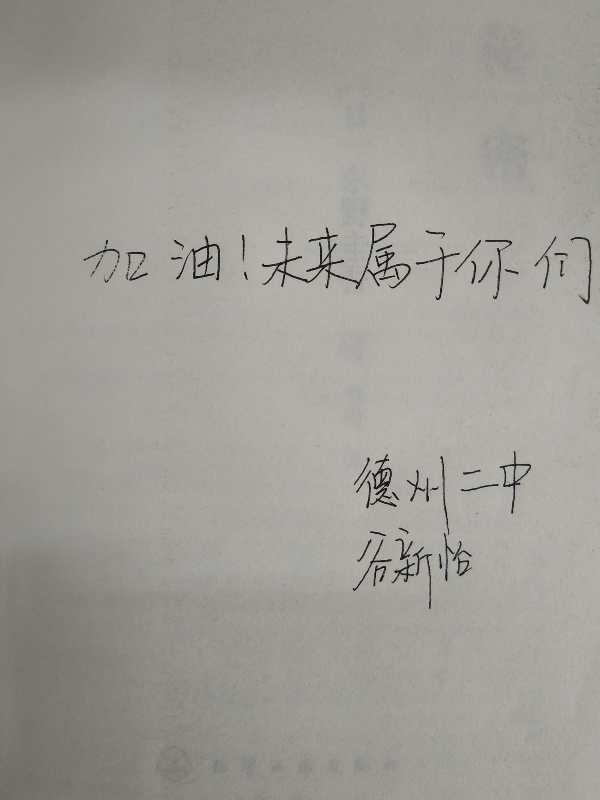 加油！未来属于你们
德州二中
谷新怡